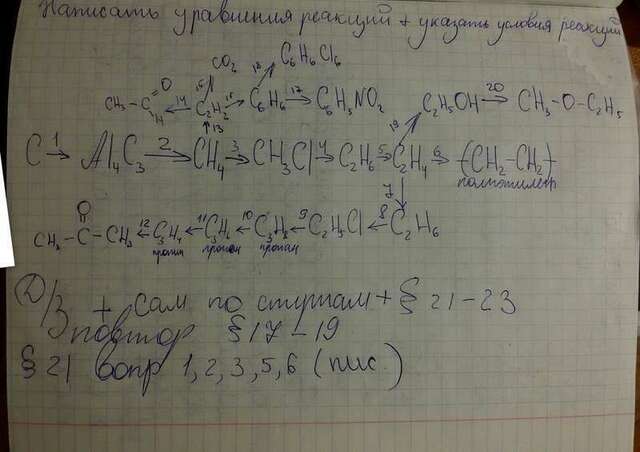 Написать уравнения реакций + указать условия реакций
CO₂ C₆H₆Cl₆
15 18
CH₃ – C =O H ←14 C₂H₂ 16→ C₆H₆ 17→ C₆H₅NO₂ C₂H₅OH 20→ CH₃ – O – C₂H₅
↑13 19
C 1→ Al₄C₃ 2→ CH₄ 3→ CH₃Cl 4→ C₂H₆ 5→ C₂H₄ 6→ (CH₂ – CH₂)
полиэтилен
7
O
CH₃ – C – CH₃ ←12 C₃H₄ ←11 C₃H₆ ←10 C₃H₈ ←9 C₂H₅Cl ←8 C₂H₆
пропин пропен пропан
Д/З + сам по ступам + § 21 – 23
повтор § 17 – 19
§ 21 вопр 1, 2, 3, 5, 6 (пис.)